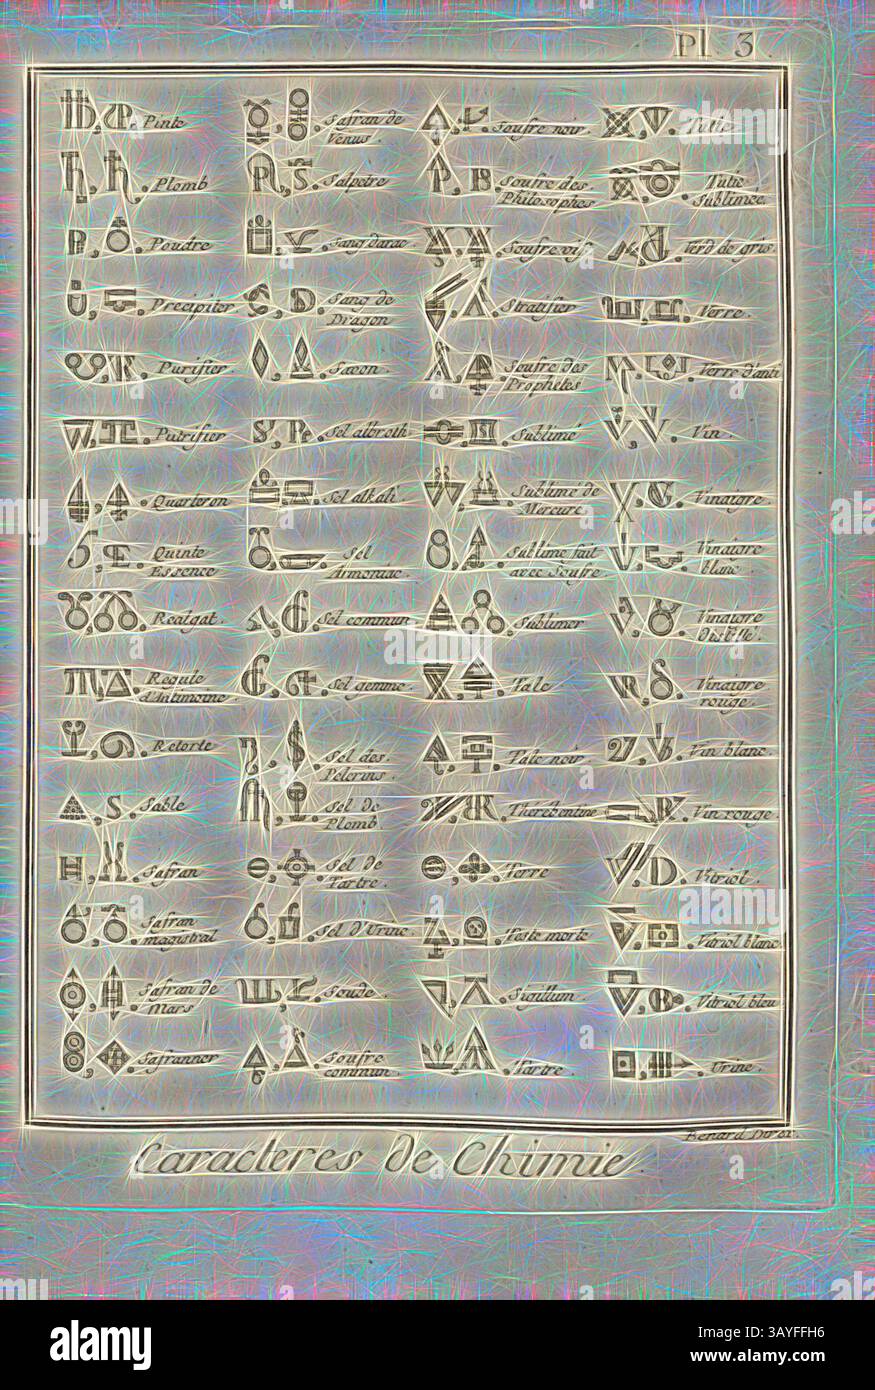 Pl. 3.
Pinte
Plomb
Poudre
Precipiter
Purifier
Putrifier
Quarteron
Quinte
Essence
Realgat.
Regule
d'Antimoine
Retorte
Sable
Safran
Safran
magistral
Safran de
Mars
Safranner
Safran de
Venus.
Salpetre
Sang darac
Sang de
Dragon
Savon
Sel albroth
Sel alkali
Sel
Armoniac.
Sel commun
Sel gemme.
Sel des
Pelerins.
Sel de
Plomb.
Sel de
Tartre.
Sel d'Urine
Soude.
Soufre
commun.
Soufre noir.
Soufre des
Philosophes
Soufre vif.
Stratifier
Soufre des
Prophetes
Sublimé
Sublimé de
Mercure.
Sublimé fait
avec Soufre.
Sublimer
Talc
Talc noir
Thérébentine
Terre
Teste morte
Sigillum.
Tartre
Tutie
Tutie
Sublimee.
Verd de gris.
Verre.
Verre d'anti
Vin.
Vinaigre.
Vinaigre
blanc.
Vinaigre
distillé.
Vinaigre
rouge.
Vin blanc.
Vin rouge.
Vitriol.
Vitriol blanc
Vitriol bleu
Urine.
Benard Direx.
Caracteres de Chimie.
alamy
Image ID: 3AYFFH6
www.alamy.com